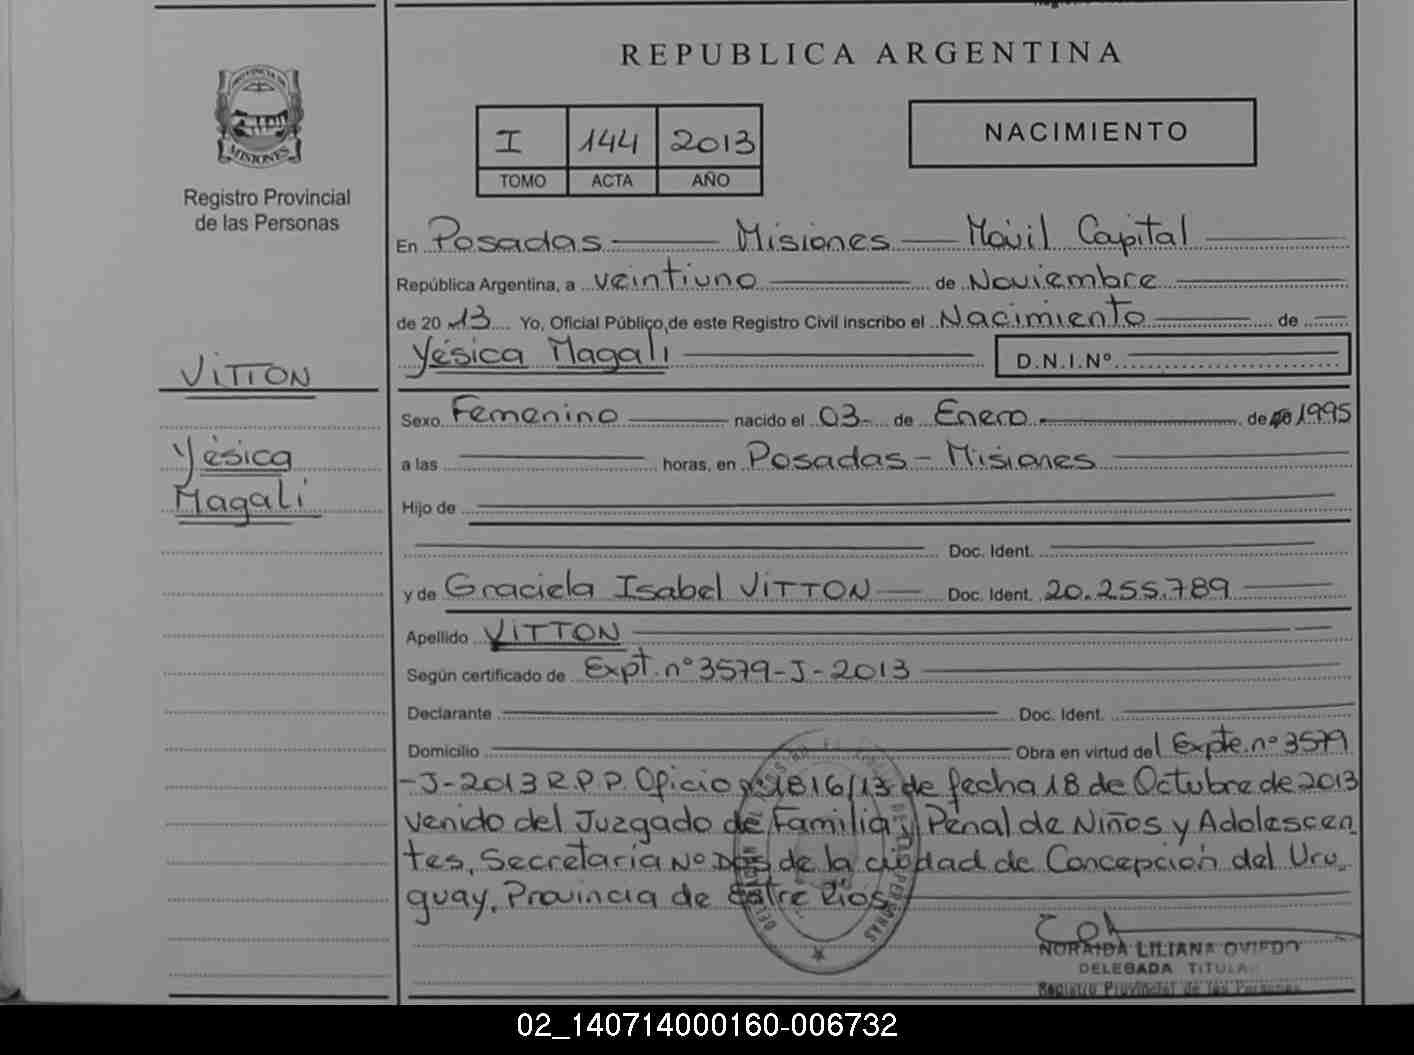 REPUBLICA ARGENTINA
PROVINCIA DE
MISIONES
Registro Provincial
de las Personas
I 144 2013
TOMO ACTA AÑO
NACIMIENTO
En Posadas Misiones Móvil Capital
República Argentina, a veintiuno de Noviembre
de 2013 Yo, Oficial Público de este Registro Civil inscribo el Nacimiento de
Yésica Magali D.N.I.Nº
VITTON
Yésica
Magali
Sexo Femenino nacido el 03 de Enero de 1995
a las horas, en Posadas - Misiones
Hijo de
Doc. Ident.
y de Graciela Isabel VITTON Doc. Ident. 20.255.789
Apellido VITTON
Según certificado de Expt. nº 3579-J-2013
Declarante Doc. Ident.
Domicilio Obra en virtud del Expte. nº 3579
-J-2013 R.P.P. Oficio nº 1816/13 de fecha 18 de Octubre de 2013
venido del Juzgado de Familia y Penal de Niños y Adolescen
tes, Secretaría Nº Dos de la ciudad de Concepción del Uru
guay, Provincia de Entre Ríos
NORAIDA LILIANA OVIEDO
DELEGADA TITULAR
Registro Provincial de las Personas
02_140714000160-006732